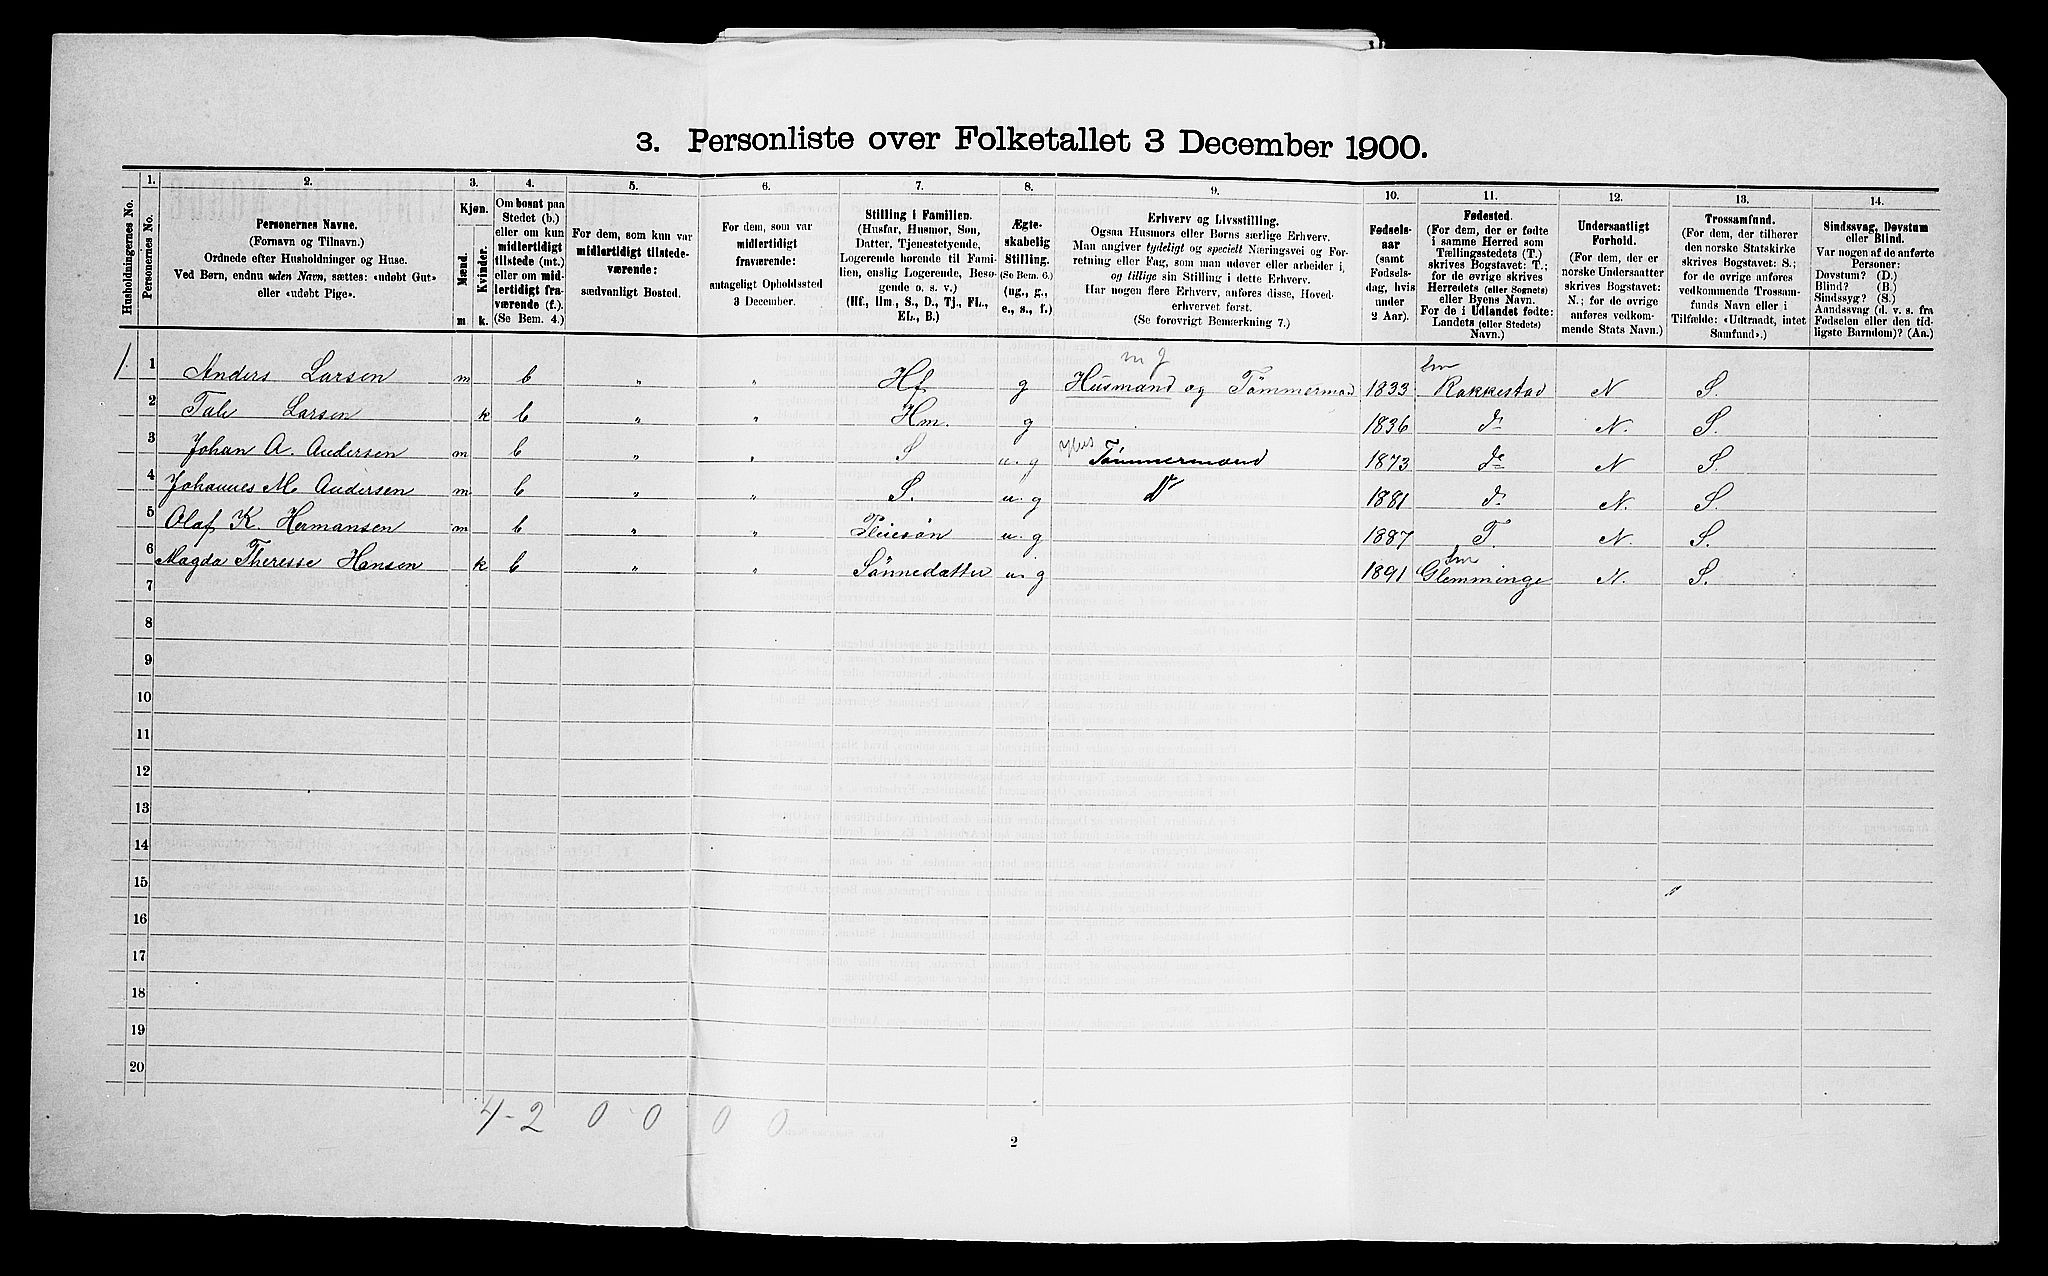 3. Personliste over Folketallet 3 December 1900.
Husholdningernes No.
1.
Personernes No.
2.
Personernes Navne.
(Fornavn og Tilnavn.)
Ordnede efter Husholdninger og Huse.
Ved Børn, endnu uden Navn, sættes: «udøbt Gut»
eller «udøbt Pige».
3.
Kjøn.
Mænd.
Kvinder.
m
k.
4.
Om bosat paa
Stedet (b.)
eller om kun
midlertidigt
tilstede (mt.)
eller om mid-
lertidigt fra-
værende (f.)
(Se Bem. 4.)
5.
For dem, som kun var
midlertidigt tilstede-
værende:
sædvanligt Bosted.
6.
For dem, som var
midlertidigt
fraværende:
antageligt Opholdssted
3 December.
7.
Stilling i Familien.
(Husfar, Husmor, Søn,
Datter, Tjenestetyende,
Logerende hørende til Fami-
lien, enslig Logerende, Besø-
gende o. s. v.)
(Hf., Hm., S., D., Tj., FL.,
EL., B.)
8.
Ægte-
skabelig
Stilling.
(Se Bem. 6.)
(ug., g.,
e., s., f.)
9.
Erhverv og Livsstilling.
Ogsaa Husmors eller Børns særlige Erhverv.
Man angiver tydeligt og specielt Næringsvei og For-
retning eller Fag, som man udøver eller arbeider i,
og tillige sin Stilling i dette Erhverv.
Har nogen flere Erhverv, anføres disse, Hoved-
erhvervet først.
(Se forøvrigt Bemærkning 7.)
10.
Fødsels-
aar
(samt
Fødsels-
dag, hvis
under
2 Aar).
11.
Fødested.
(For dem, der er fødte
i samme Herred som
Tællingsstedets (T.)
skrives Bogstavet: T.;
for de øvrige skrives
Herredets (eller Sognets)
eller Byens Navn.
For de i Udlandet fødte:
Landets (eller Stedets)
Navn.)
12.
Undersaatligt
Forhold.
(For dem, der er
norske Undersaatter
skrives Bogstavet:
N.; for de øvrige
anføres vedkom-
mende Stats Navn.)
13.
Trossamfund.
(For dem, der tilhører
den norske Statskirke
skrives Bogstavet: S.;
for de øvrige anføres
vedkommende Trossam-
funds Navn eller i
Tilfælde: «Udtraadt, intet
Samfund».)
14.
Sindssvag, Døvstum
eller Blind.
Var nogen af de anførte
Personer:
Døvstum? (D.)
Blind? (B.)
Sindssyg? (S.)
Aandssvag (d. v. s. fra
Fødselen eller den tid-
ligste Barndom)? (Aa.)
m g
1. 1 Anders Larsen m b " " Hf g Husmand og Tømmermand 1833 Rakkestad N S.
2 Tale Larsen k b " " Hm. g 1836 d° N. S.
3 Johan A. Andersen m b " " S u. g Tømmermand 1873 d° N S.
4 Johannes M. Andersen m b " " S. u. g D° 1881 d° N. S.
5 Olaf K. Hermansen m b " " Pleiesøn u. g 1887 T. N. S.
6 Magda Theresse Hansen k b " " Sønnedatter u. g 1891 Glemminge N. S.
7
8
9
10
11
12
13
14
15
16
17
18
19
20
4-2 0 0 0 0
2